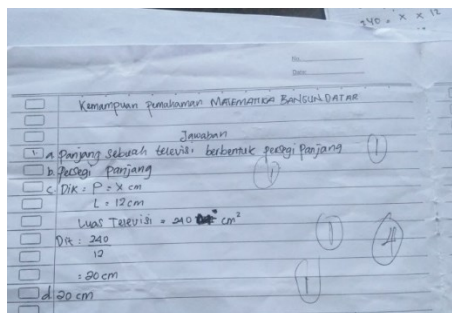 240 = x x 12
No
Date
Kemampuan Pemahaman MATEMATIKA BANGUN DATAR
Jawaban
1. a. Panjang sebuah televisi berbentuk persegi Panjang 1
b. Persegi panjang 1
c. Dik : P = x cm
L = 12 cm
Luas Televisi = 240 cm² 1
Dit : 240
12
= 20 cm
d 20 cm 1
4